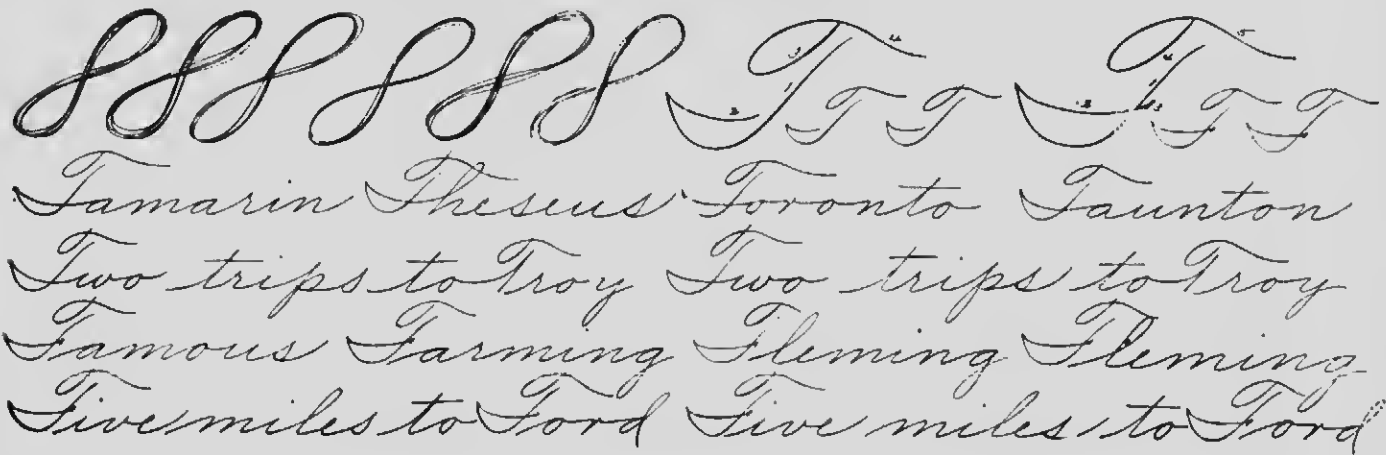 T T T F F F
Tamarin Theseus Toronto Taunton
Two trips to Troy Two trips to Troy
Famous Farming Fleming Fleming
Five miles to Ford Five miles to Ford